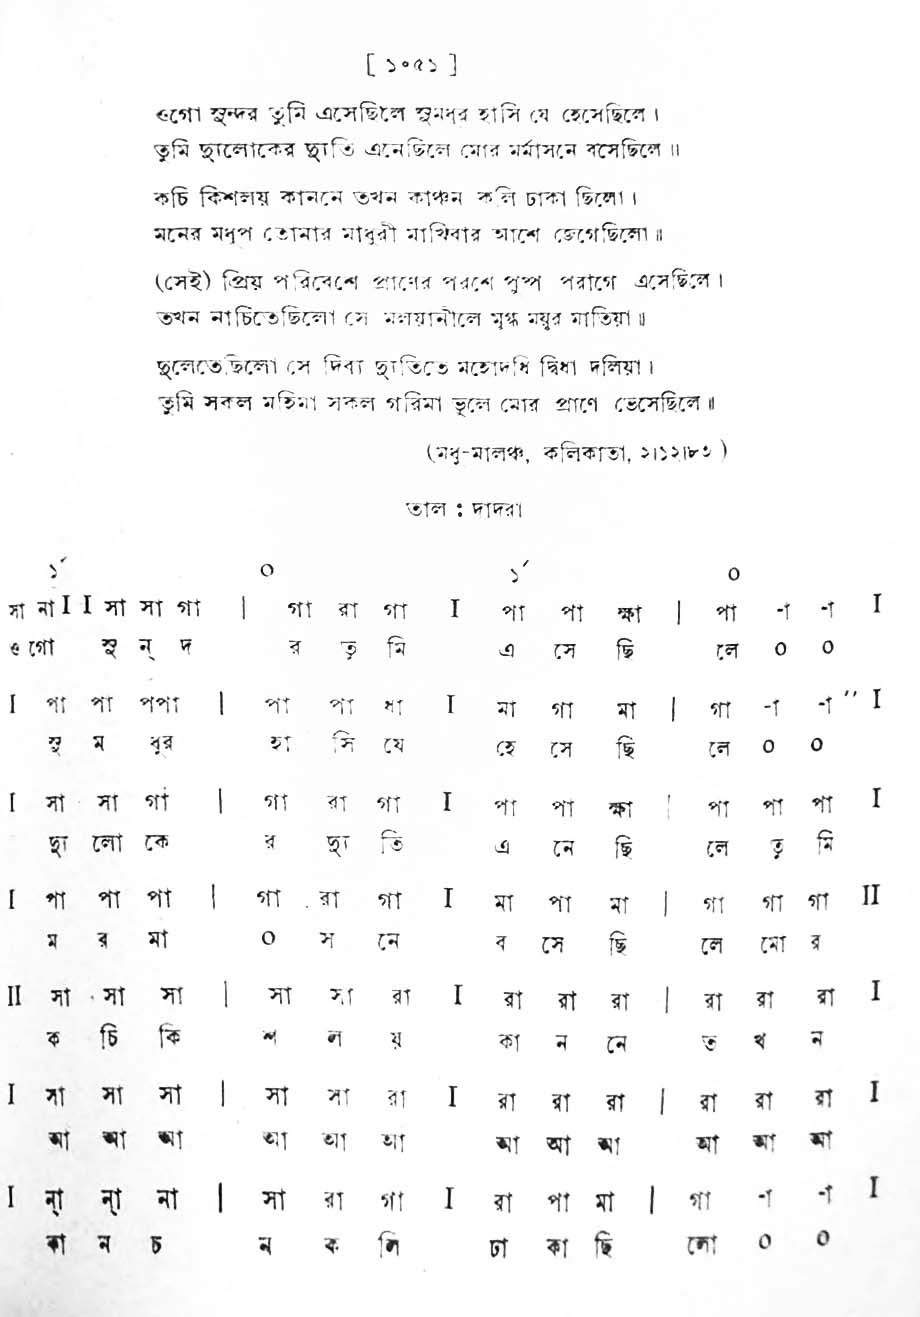 [ ১০৫১ ]
ওগো সুন্দর তুমি এসেছিলে সুমধুর হাসি যে হেসেছিলে।
তুমি দ্যুলোকের দ্যুতি এনেছিলে মোর মর্মাসনে বসেছিলে॥
কচি কিশলয় কাননে তখন কাঞ্চন কলি ঢাকা ছিলো।
মনের মধুপ তোমার মাধুরী মাখিবার আশে জেগেছিলো॥
(সেই) প্রিয় পরিবেশে প্রাণের পরশে পুষ্প পরাগে এসেছিলে।
তখন নাচিতেছিলো সে মলয়ানীলে মুগ্ধ ময়ুর মাতিয়া॥
দুলেতেছিলো সে দিব্য দ্যুতিতে মহোদধি দ্বিধা দলিয়া।
তুমি সকল মহিমা সকল গরিমা ভুলে মোর প্রাণে ভেসেছিলে॥
(মধু-মালঞ্চ, কলিকাতা, ২।১২।৮৩)
তাল : দাদরা
১´ ০ ১´ ০
সা না I I সা সা গা | গা রা গা I পা পা ক্ষা | পা -া -া I
ও গো সু ন্ দ র তু মি এ সে ছি লে ০ ০
I পা পা পপা | পা পা ধা I মা গা মা | গা -া -া ″ I
সু ম ধুর হা সি যে হে সে ছি লে ০ ০
I সা সা গা | গা রা গা I পা পা ক্ষা | পা পা পা I
দ্যু লো কে র দ্যু তি এ নে ছি লে তু মি
I পা পা পা | গা রা গা I মা পা মা | গা গা গা II
ম র মা ০ স নে ব সে ছি লে মো র
II সা সা সা | সা সা রা I রা রা রা | রা রা রা I
ক চি কি শ ল য় কা ন নে ত খ ন
I সা সা সা | সা সা রা I রা রা রা | রা রা রা I
আ আ আ আ আ আ আ আ আ আ আ আ
I না্ না্ না | সা রা গা I রা পা মা | গা -া -া I
কা ন চ ন ক লি ঢা কা ছি লো ০ ০